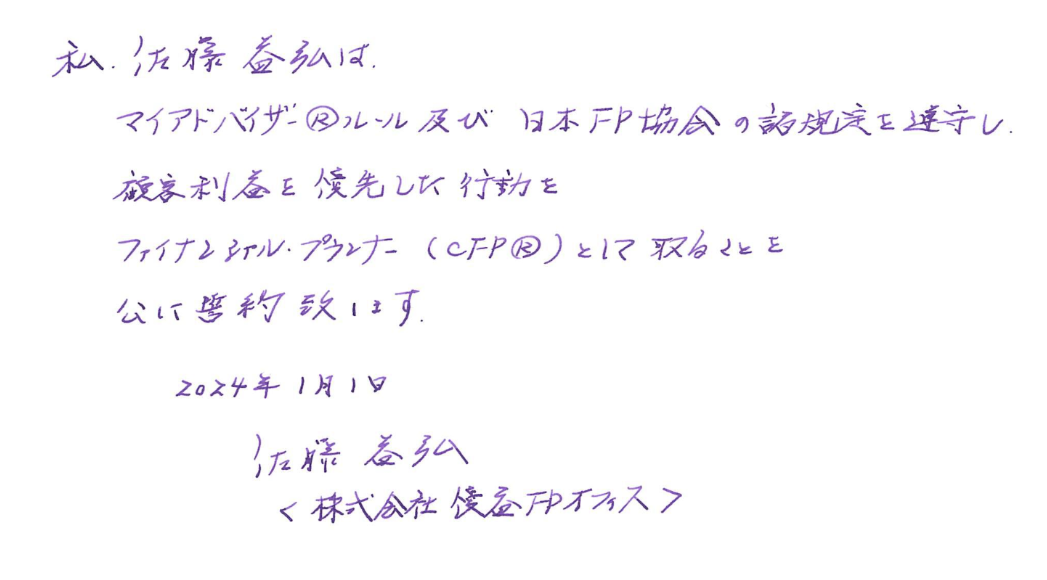 私、佐藤 益弘は、
マイアドバイザー®ルール及び 日本FP協会の諸規定を遵守し、
顧客利益を優先した行動を
ファイナンシャル・プランナー（CFP®）として取ることを
公に誓約致します。
2024年1月1日
佐藤 益弘
＜株式会社優益FPオフィス＞